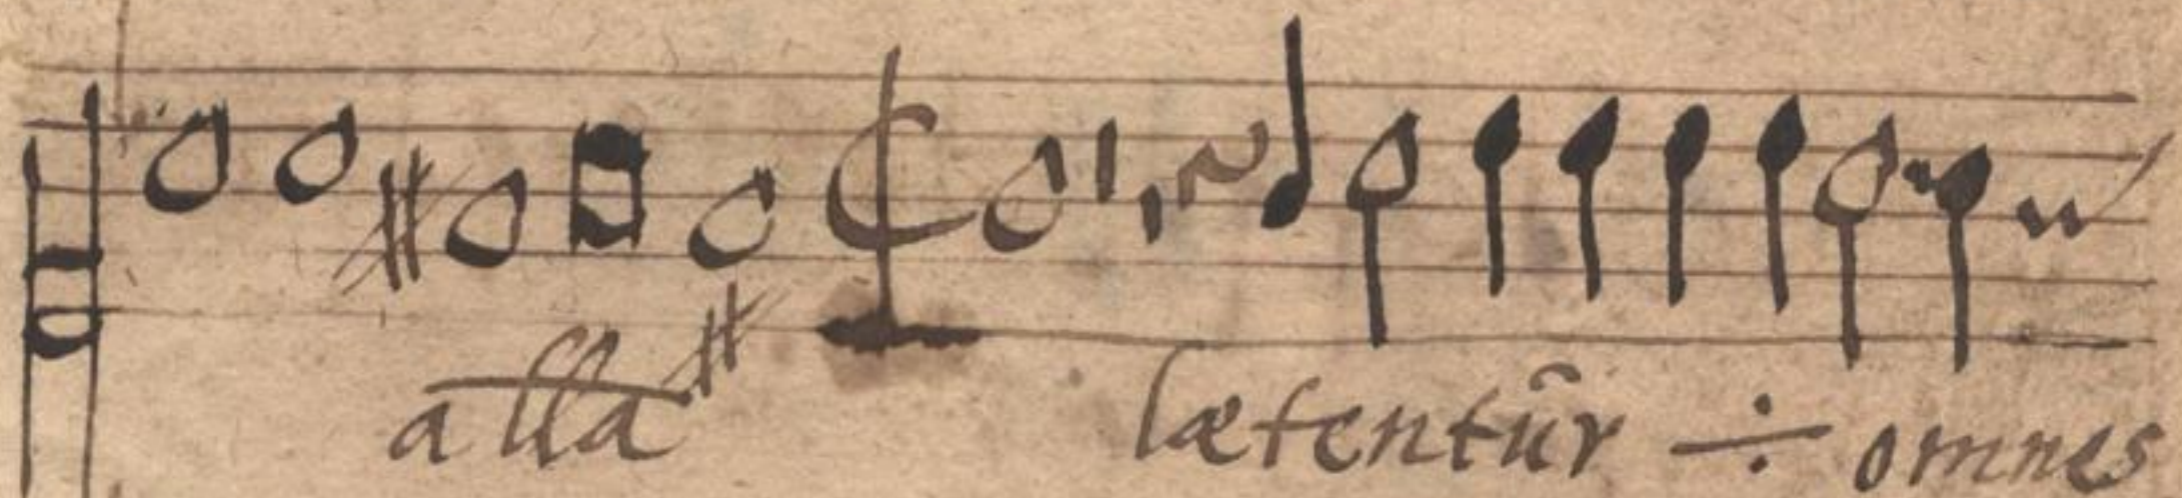 alla lætentur ÷ omnes